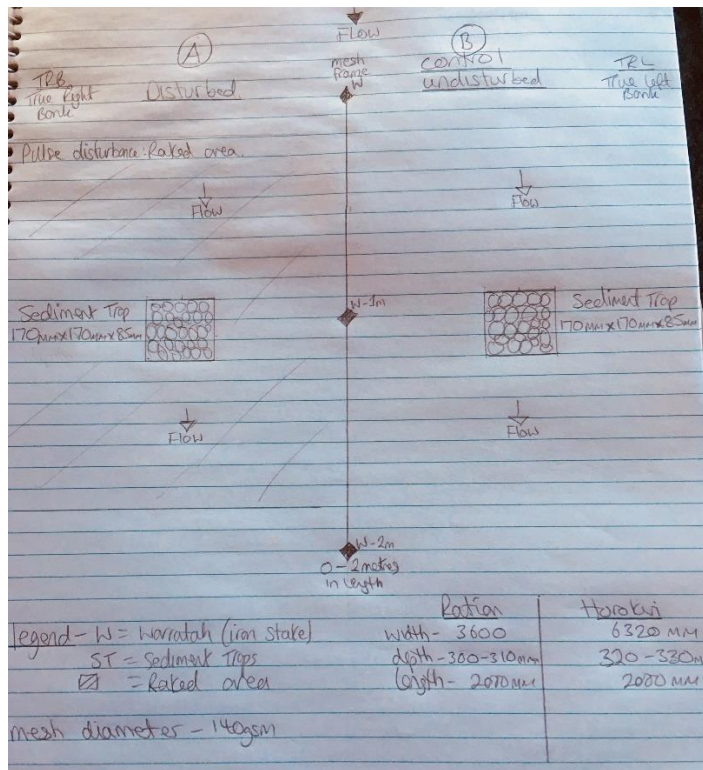 Flow
A
B
TRB
True Right
Bank
Disturbed
mesh
frame
W
control
undisturbed
TRL
True left
Bank
Pulse disturbance: Raked area.
Flow
Flow
Sediment Trap
170mm x 170mm x 85mm
W-1m
Sediment Trap
170mm x 170mm x 85mm
Flow
Flow
W-2m
0-2metres
in length
legend - W = Warratah (iron stake)
ST = Sediment Traps
= Raked area
mesh diameter - 140gsm
Horokiri
width - 3600
6320 mm
depth - 300-310mm
320-330m
length - 2080mm
2080 mm